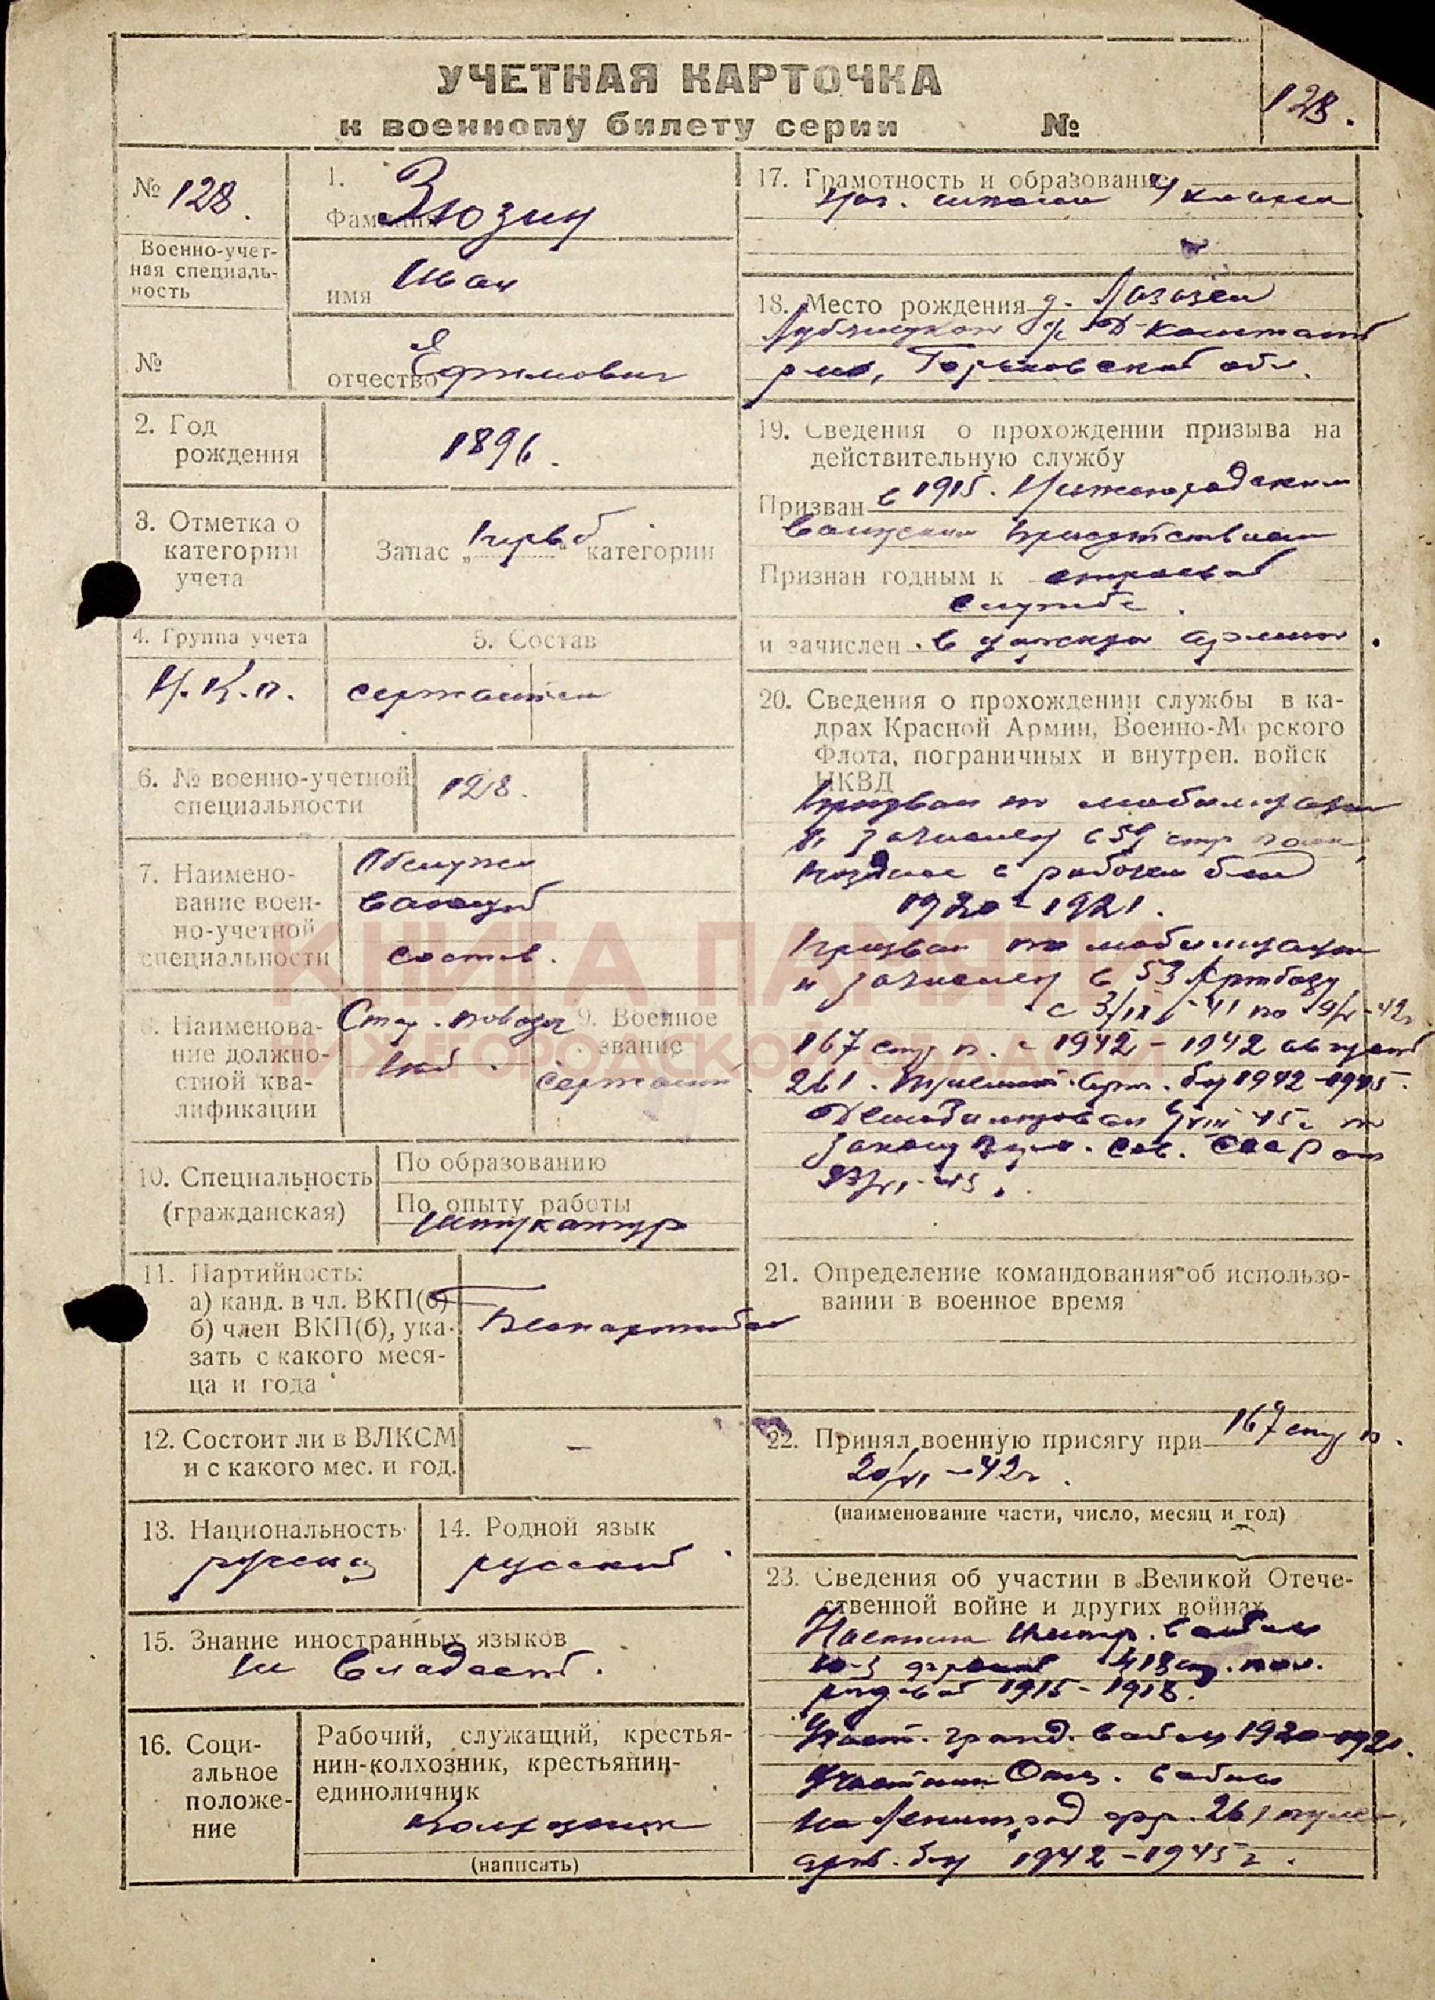 УЧЕТНАЯ КАРТОЧКА
к военному билету серии №
128.
№ 128.
Военно-учет-
ная специаль-
ность
№
1.
Фамилия Зюзин
имя Иван
отчество Ефимович
2. Год
рождения
1896.
3. Отметка о
категории
учета
Запас „первой“ категории
4. Группа учета
Н.К.п.
5. Состав
сержантск
6. № военно-учетной
специальности
128.
7. Наимено-
вание воен-
но-учетной
специальности
Обслужи
вающий
состав.
8. Наименова-
ние должно-
стной ква-
лификации
Стар. повозоч
ный.
9. Военное
звание
сержант
10. Специальность
(гражданская)
По образованию
По опыту работы
штукатур
11. Партийность:
а) канд. в чл. ВКП(б)
б) член ВКП(б), ука-
зать с какого меся-
ца и года
Беспартийный
12. Состоит ли в ВЛКСМ
и с какого мес. и год.
—
13. Национальность
русский
14. Родной язык
русский
15. Знание иностранных языков
не владеет.
16. Соци-
альное
положе-
ние
Рабочий, служащий, крестья-
нин-колхозник, крестьянин-
единоличник
колхозник
(написать)
17. Грамотность и образование
нач. школы 4 класса
18. Место рождения д.
Д-Констант
р-на, Горьковской обл.
19. Сведения о прохождении призыва на
действительную службу
Призван в 1915. Нижегородским
воинским присутствием
Признан годным к строевой
службе.
и зачислен в царскую армию.
20. Сведения о прохождении службы в ка-
драх Красной Армии, Военно-Морского
Флота, пограничных и внутрен. войск
НКВД
Призван по мобилизации
и зачислен в 59 стр. полк,
рабочий бат
1920-1921.
Призван по мобилизации
и зачислен в 53 Артбазу
с 3/IX-41 по 42г
167 стр п. с 1942-1942 август
261. пулемет. арт. бат 1942-1945.
Демобилизован VIII 45г по
закону Верх. Сов. СССР от
23/VI-45.
21. Определение командования об использо-
вании в военное время
22. Принял военную присягу при 167 стр п.
20/VI-42г.
(наименование части, число, месяц и год)
23. Сведения об участии в Великой Отече-
ственной войне и других войнах
Участник империал. войны
Ю-З фронт 418 стр. пол.
рядовой 1915-1918.
Участ. гражд. войны 1920-1921.
Участник Отеч. войны
на Ленинград фр. 261 пулем.
арт. бат 1942-1945 г.
КНИГА ПАМЯТИ
НИЖЕГОРОДСКОЙ ОБЛАСТИ